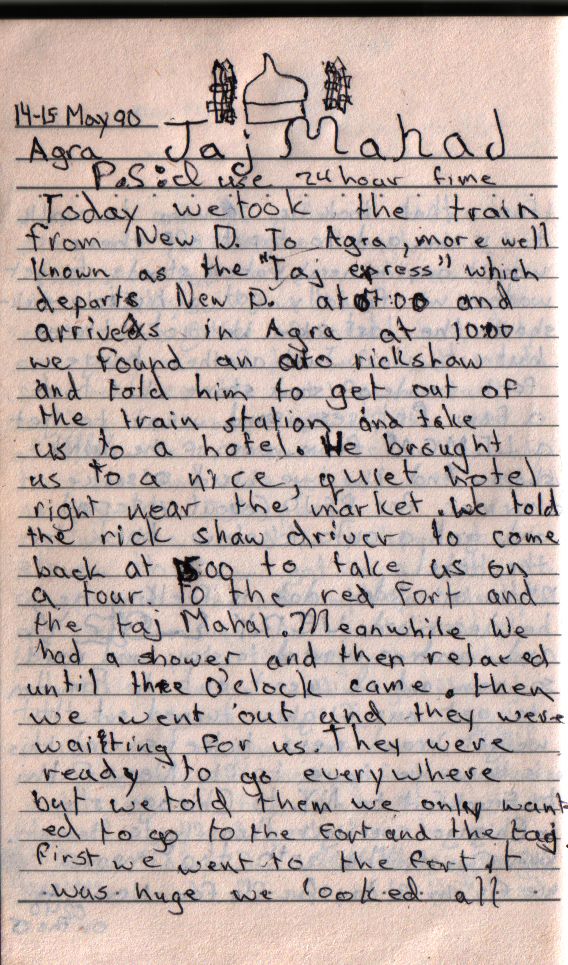 14-15 May 90
Agra Taj Mahad
P.S: I use 24 hour time
Today we took the train
from New D. To Agra, more well
known as the "Taj express" which
departs New D. at 07:00 and
arrives in Agra at 10:00
we found an auto rickshaw
and told him to get out of
the train station and take
us to a hotel. He brought
us to a nice, quiet hotel
right near the market. We told
the rick shaw driver to come
back at 1500 to take us on
a tour. to the red fort and
the taj Mahal. Meanwhile We
had a shower and then relaxed
until three O'clock came. then
we went out and they were
waiting for us. They were
ready to go everywhere
but we told them we only want
ed to go to the fort and the taj.
first we went to the fort it
was huge we looked all